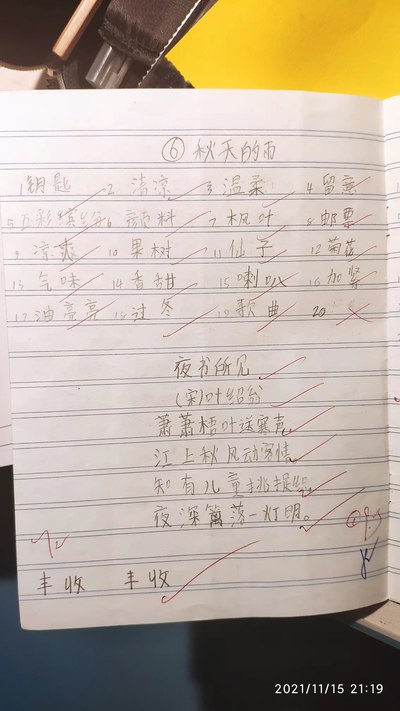 ⑥ 秋天的雨
1 钥匙 2 清凉 3 温柔 4 留意
5 五彩缤纷 6 颜料 7 枫叶 8 邮票
9 凉爽 10 果树 11 仙子 12 菊花
13 气味 14 香甜 15 喇叭 16 加紧
17 油亮亮 18 过冬 19 歌曲 20
夜书所见
(宋)叶绍翁
萧萧梧叶送寒声
江上秋风动客情
知有儿童挑促织
夜深篱落一灯明。
丰收 丰收
2021/11/15 21:19